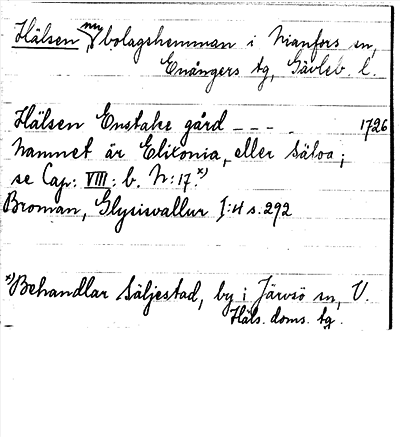 Hälsen, nu bolagshemman i Nianfors sn,
Enångers tg, Gävleb. l.
Hälsen Enstake gård - - - - 1726
namnet är Elisonia, eller Säloa;
se Cap: VIII: b. N:17.x)
Broman, Glysisvallur I:4 s. 292
x) Behandlar Säljestad, by i Järvsö sn, V.
Häls. doms. tg.